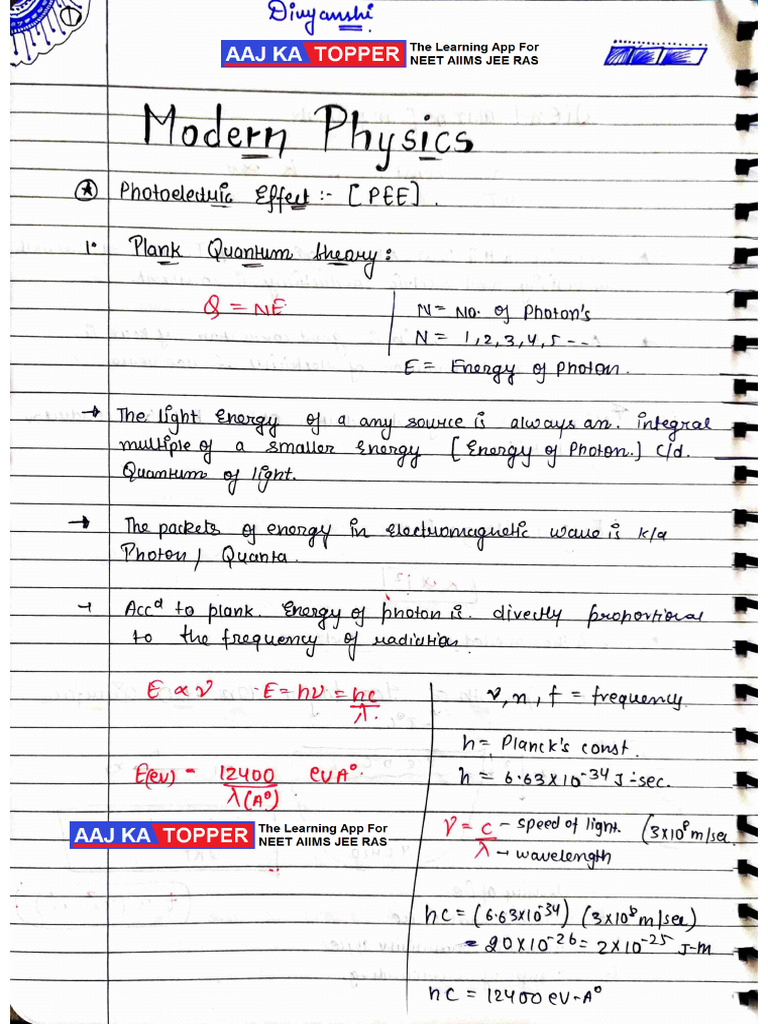 1
Divyanshi
AAJ KA TOPPER The Learning App For
NEET AIIMS JEE RAS
Modern Physics
Photoelectric Effect :- [PEE].
1. Plank Quantum theory :
Q = NE
N = No. of Photon's
N = 1, 2, 3, 4, 5 - - -
E = Energy of Photon.
→ The light Energy of a any source is always an. integral
multiple of a smaller energy [Energy of Photon.] C/d.
Quantum of light.
→ The packets of energy in electromagnetic wave is k/a
Photon / Quanta.
→ Accd to plank. Energy of photon is. directly proportional
to the frequency of radiation.
E ∝ ν E = hν = hc/λ.
ν, n, f = frequency
h = Planck's const.
h = 6.63×10^-34 J-sec.
E(ev) = 12400/λ(A°) eVA°.
ν = c/λ - speed of light. (3×10^8 m/sec.
→ wavelength
AAJ KA TOPPER The Learning App For
NEET AIIMS JEE RAS
hc = (6.63×10^-34) (3×10^8 m/sec)
= 20×10^-26 = 2×10^-25 J-m
hc = 12400 eV-A°